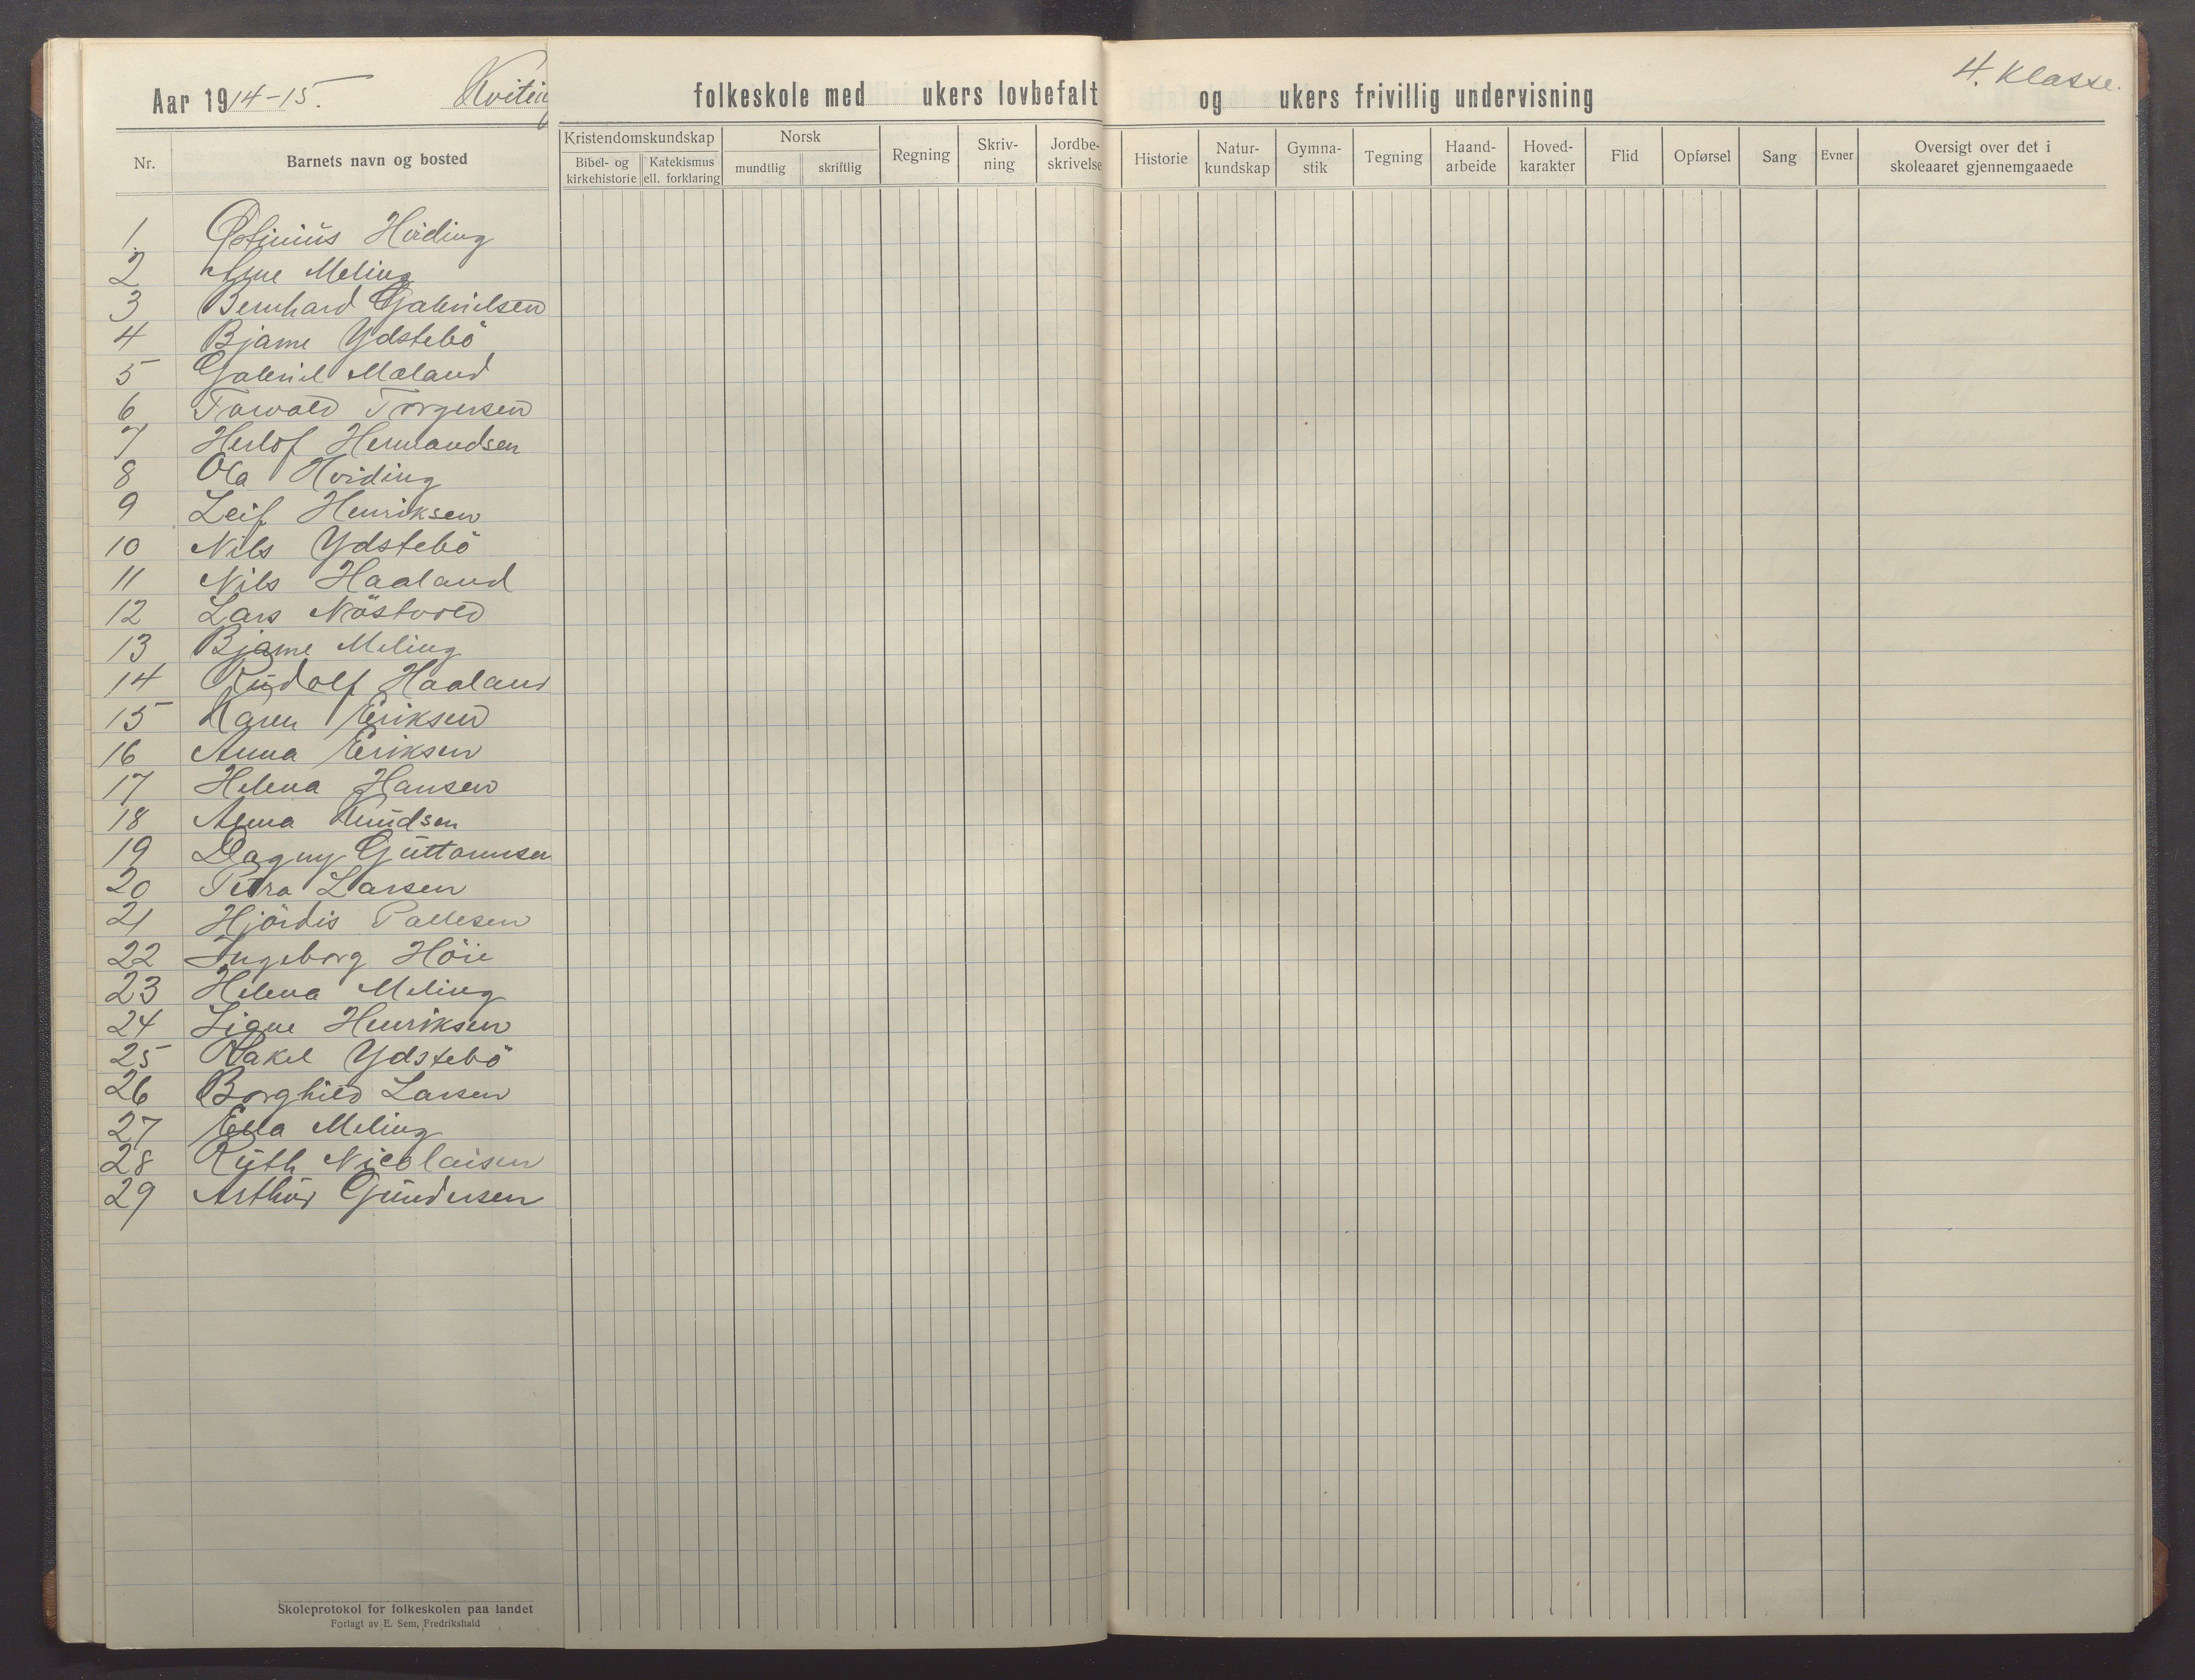 Aar 1914-15. folkeskole med ukers lovbefalt og ukers frivillig undervisning 4. Klasse.
Nr. Barnets navn og bosted Kristendomskundskap Bibel- og kirkehistorie Katekismus ell. forklaring Norsk mundtlig skriftlig Regning Skriv-ning Jordbe-skrivelse Historie Natur-kundskap Gymna-stik Tegning Haand-arbeide Hoved-karakter Flid Opførsel Sang Evner Oversigt over det i skoleaaret gjennemgaaede
1 Hviding
2 Arne Meling
3 Bernhard Gabrielsen
4 Bjarne Ydstebö
5 Gabriel Mæland
6 Torvald Torgersen
7 Herlof Hermandsen
8 Ola Hviding
9 Leif Henriksen
10 Nils Ydstebö
11 Nils Haaland
12 Lars Nöstvold
13 Bjarne Meling
14 Rudolf Haaland
15 Karen Eriksen
16 Anna Eriksen
17 Helena Hansen
18 Anna Knudsen
19 Dagny Guttormsen
20 Petra Larsen
21 Hjördis Pallesen
22 Ingeborg Höie
23 Helena Meling
24 Signe Henriksen
25 Rakel Ydstebö
26 Borghild Larsen
27 Ella Meling
28 Ruth Nicolaisen
29 Arthur Gundersen
Skoleprotokol for folkeskolen paa landet
Forlagt av E. Sem, Fredrikshald